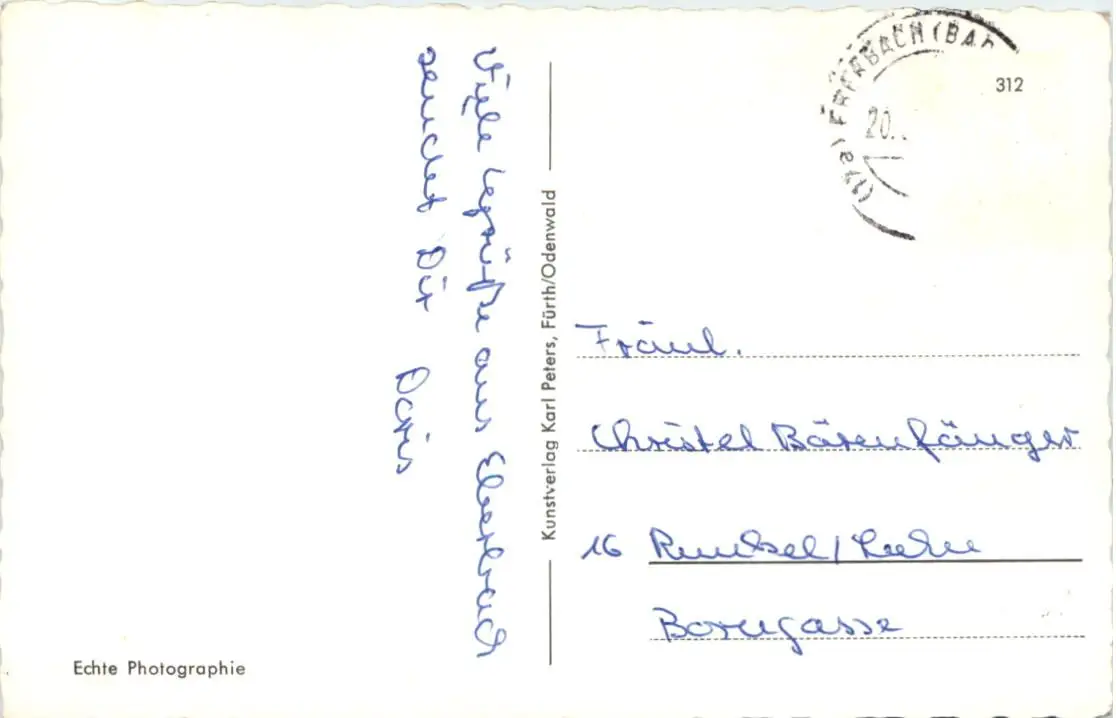 Viele Grüße aus Eberbach
sendet Dir Doris
Kunstverlag Karl Peters, Fürth/Odenwald
Echte Photographie
(17a) EBERBACH (BAD
20.
312
Fräul.
Christel Bärenfänger
16 Runkel/Lahn
Borngasse